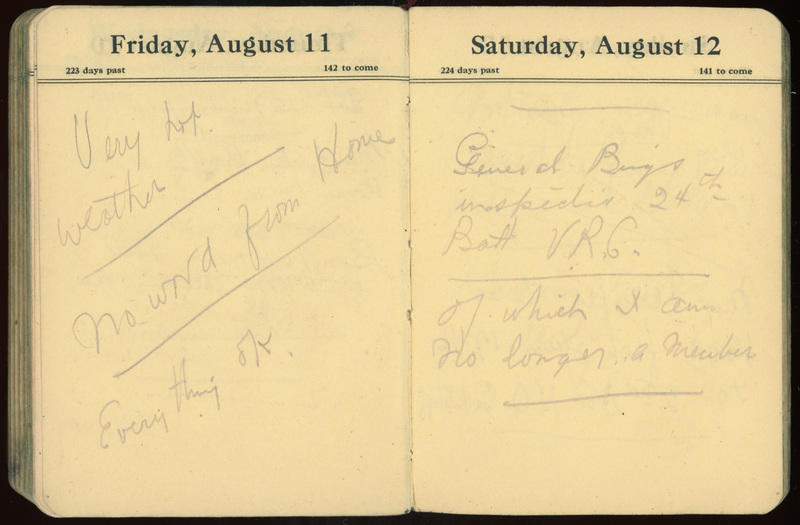 Friday, August 11
223 days past 142 to come
Very hot.
weather
No word from Home
Everything ok.
Saturday, August 12
224 days past 141 to come
General Bings
inspectis 24th
Batt V.R.C.
of which I am
no longer a Member